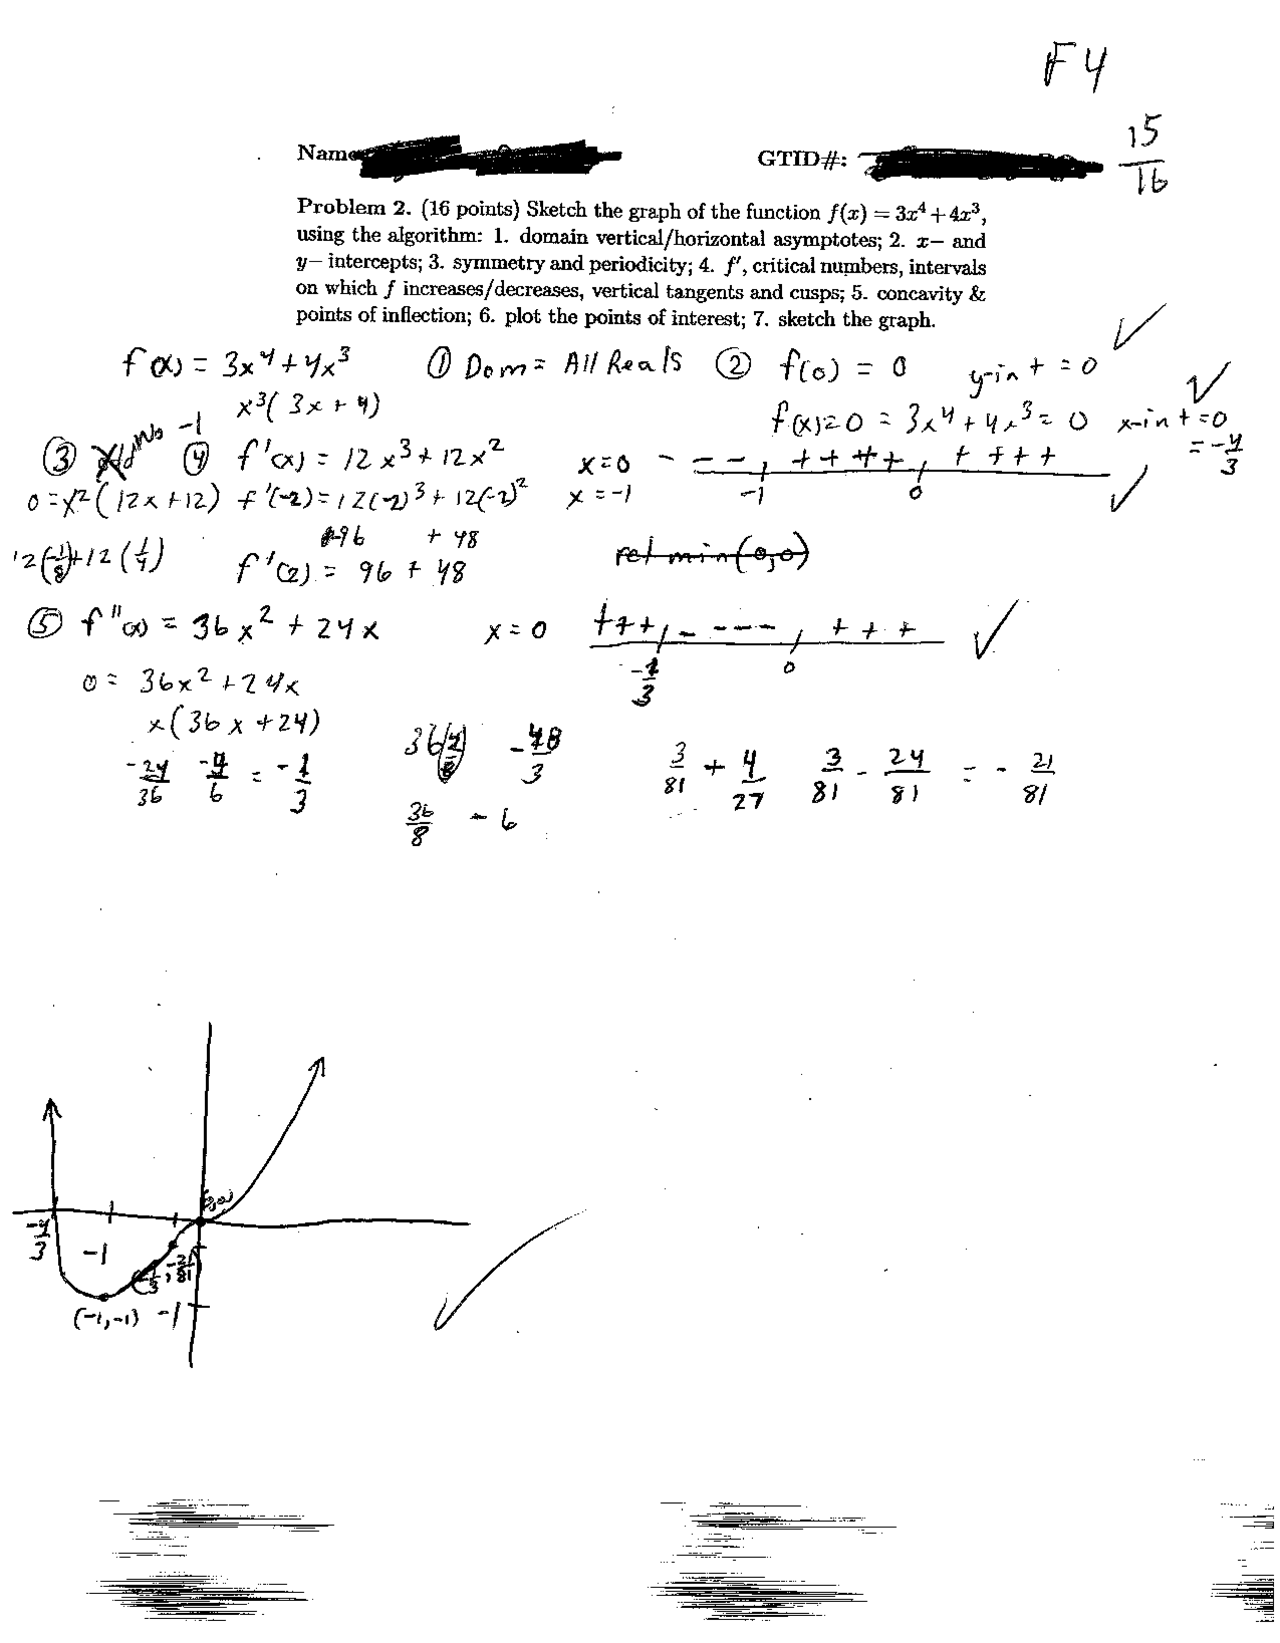 F4
15/16
Name GTID#:
Problem 2. (16 points) Sketch the graph of the function f(x) = 3x⁴ + 4x³,
using the algorithm: 1. domain vertical/horizontal asymptotes; 2. x− and
y− intercepts; 3. symmetry and periodicity; 4. f′, critical numbers, intervals
on which f increases/decreases, vertical tangents and cusps; 5. concavity &
points of inflection; 6. plot the points of interest; 7. sketch the graph.
f(x) = 3x⁴ + 4x³ ① Dom = All Reals ② f(0) = 0 y-int = 0 ✓
x³(3x + 4) f(x)=0 = 3x⁴ + 4x³ = 0 x-int = 0 ✓
= -4/3
③ No -1 ④ f'(x) = 12x³ + 12x² x=0 - - - - + + + + + + + +
0 = x²(12x + 12) f'(-2) = 12(-2)³ + 12(-2)² x = -1 -1 0 ✓
-96 + 48
12(-1/8)+12(1/4) f'(2) = 96 + 48 rel min(0,0)
⑤ f''(x) = 36x² + 24x x = 0 + + + - - - - + + + ✓
-1/3 0
0 = 36x² + 24x
x(36x + 24)
-24/36 -4/6 = -1/3 -48/3 3/81 + 4/27 3/81 - 24/81 = - 21/81
36/8 - 6
(0,0)
-4/3 -1
(-1/3, -21/81)
(-1,-1) -1 ✓